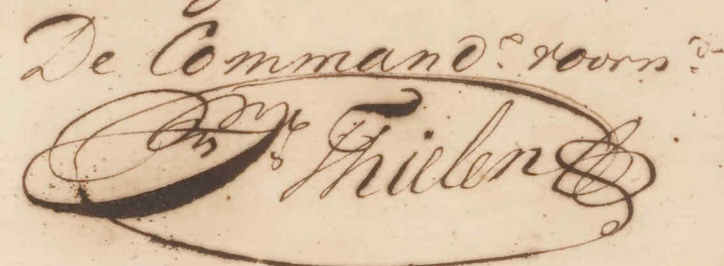 De Command.e voorn.d
Thielen